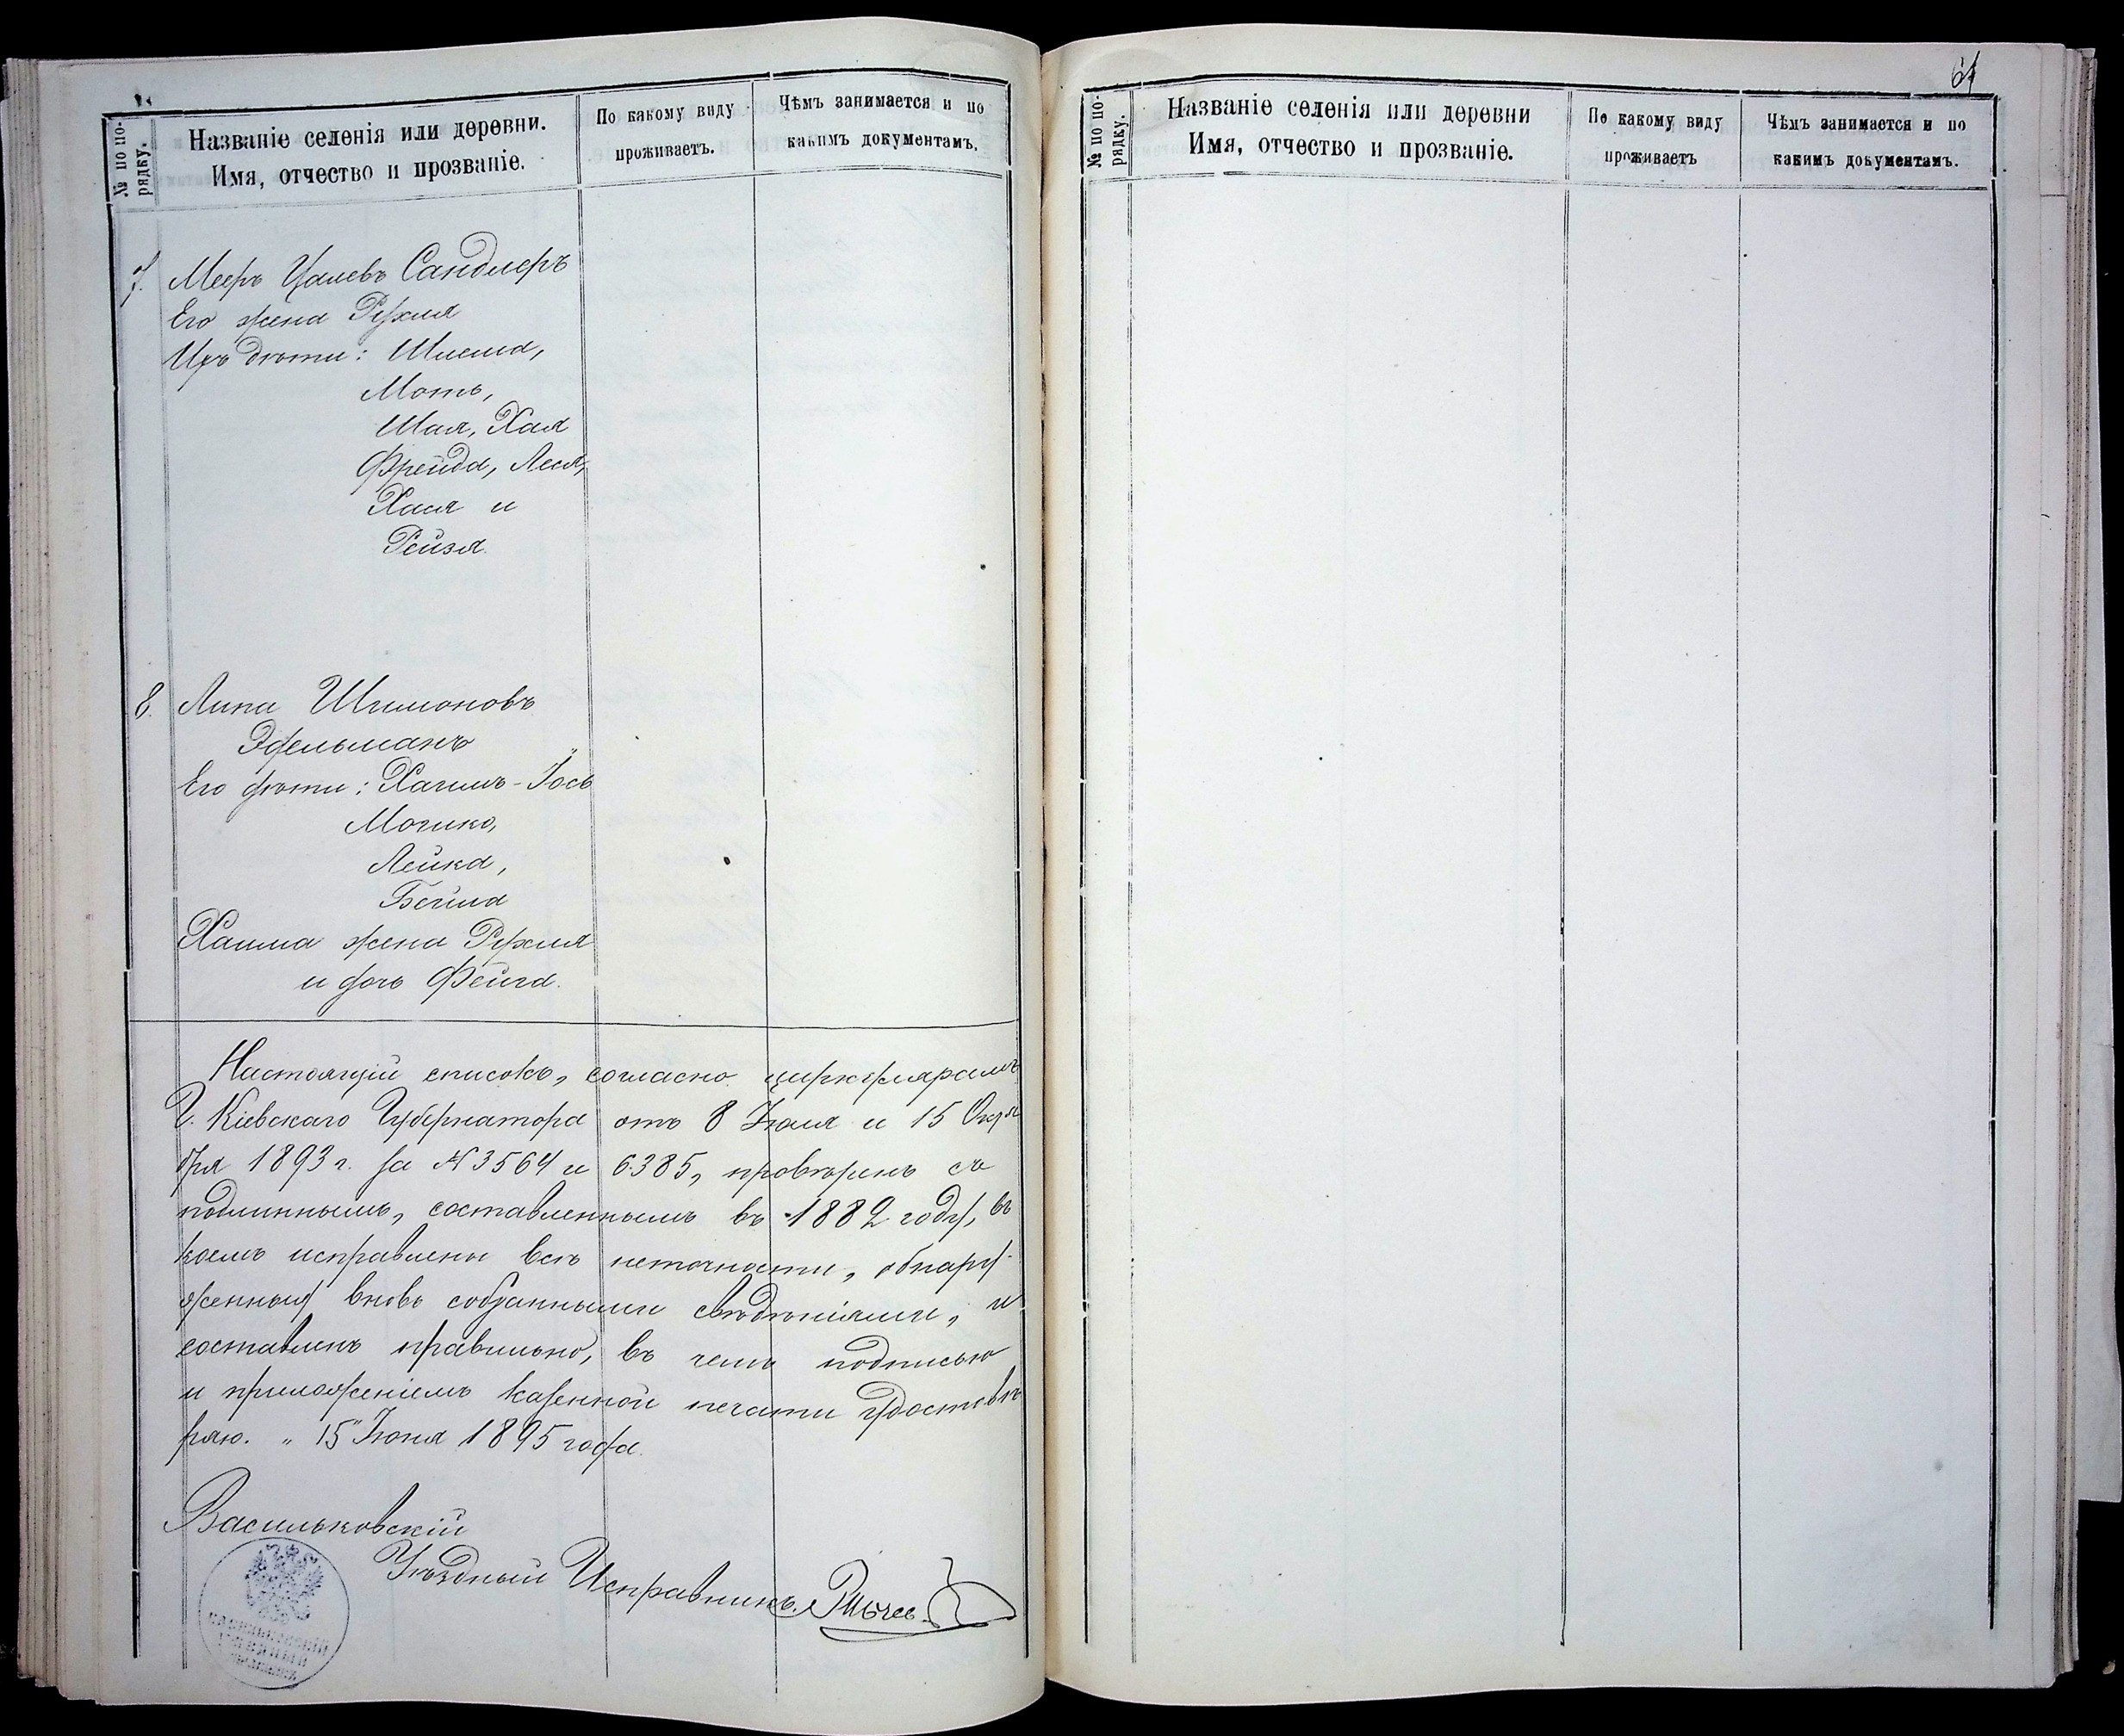 № по по-
рядку.
Названіе селенія или деревни.
Имя, отчество и прозваніе.
По какому виду
проживаетъ.
Чѣмъ занимается и по
какимъ документамъ.
7. Мееръ Цалевъ Сандлеръ
Его жена Рухля
Ихъ дѣти: Шлема,
Моть,
Шая, Хая
Фрейда, Леся,
Хася и
Рейзя.
8. Липа Шимоновъ
Эдельманъ
Его дѣти: Хаимъ-Іось
Мошко,
Лейка,
Бейла
Хаима жена Рухля
и дочь Фейга.
Настоящій списокъ, согласно циркулярамъ
Г. Кіевскаго Губернатора отъ 8 Іюля и 15 Октя
бря 1893 г. за № 3564 и 6385, провѣренъ съ
подлиннымъ, составленнымъ въ 1882 году, въ
коемъ исправлены всѣ неточности, обнару-
женныя вновь собранными свѣдѣніями, и
составленъ правильно, въ чемъ подписью
и приложеніемъ казенной печати удостовѣ
ряю. „15" Іюня 1895 года.
Васильковскій
Уѣздный Исправникъ.
61
№ по по-
рядку.
Названіе селенія или деревни
Имя, отчество и прозваніе.
По какому виду
проживаетъ
Чѣмъ занимается и по
какимъ документамъ.